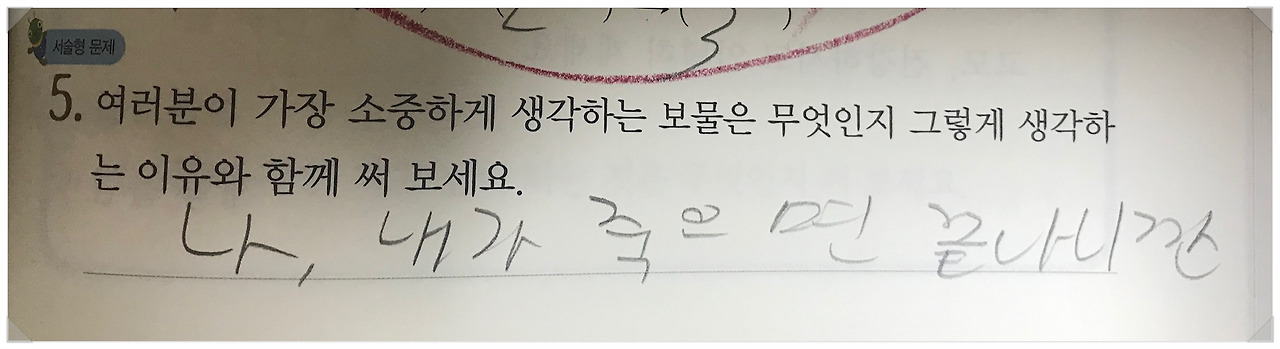 (2) → (3)
서술형 문제
5. 여러분이 가장 소중하게 생각하는 보물은 무엇인지 그렇게 생각하
는 이유와 함께 써 보세요.
나, 내가 죽으면 끝나니깐